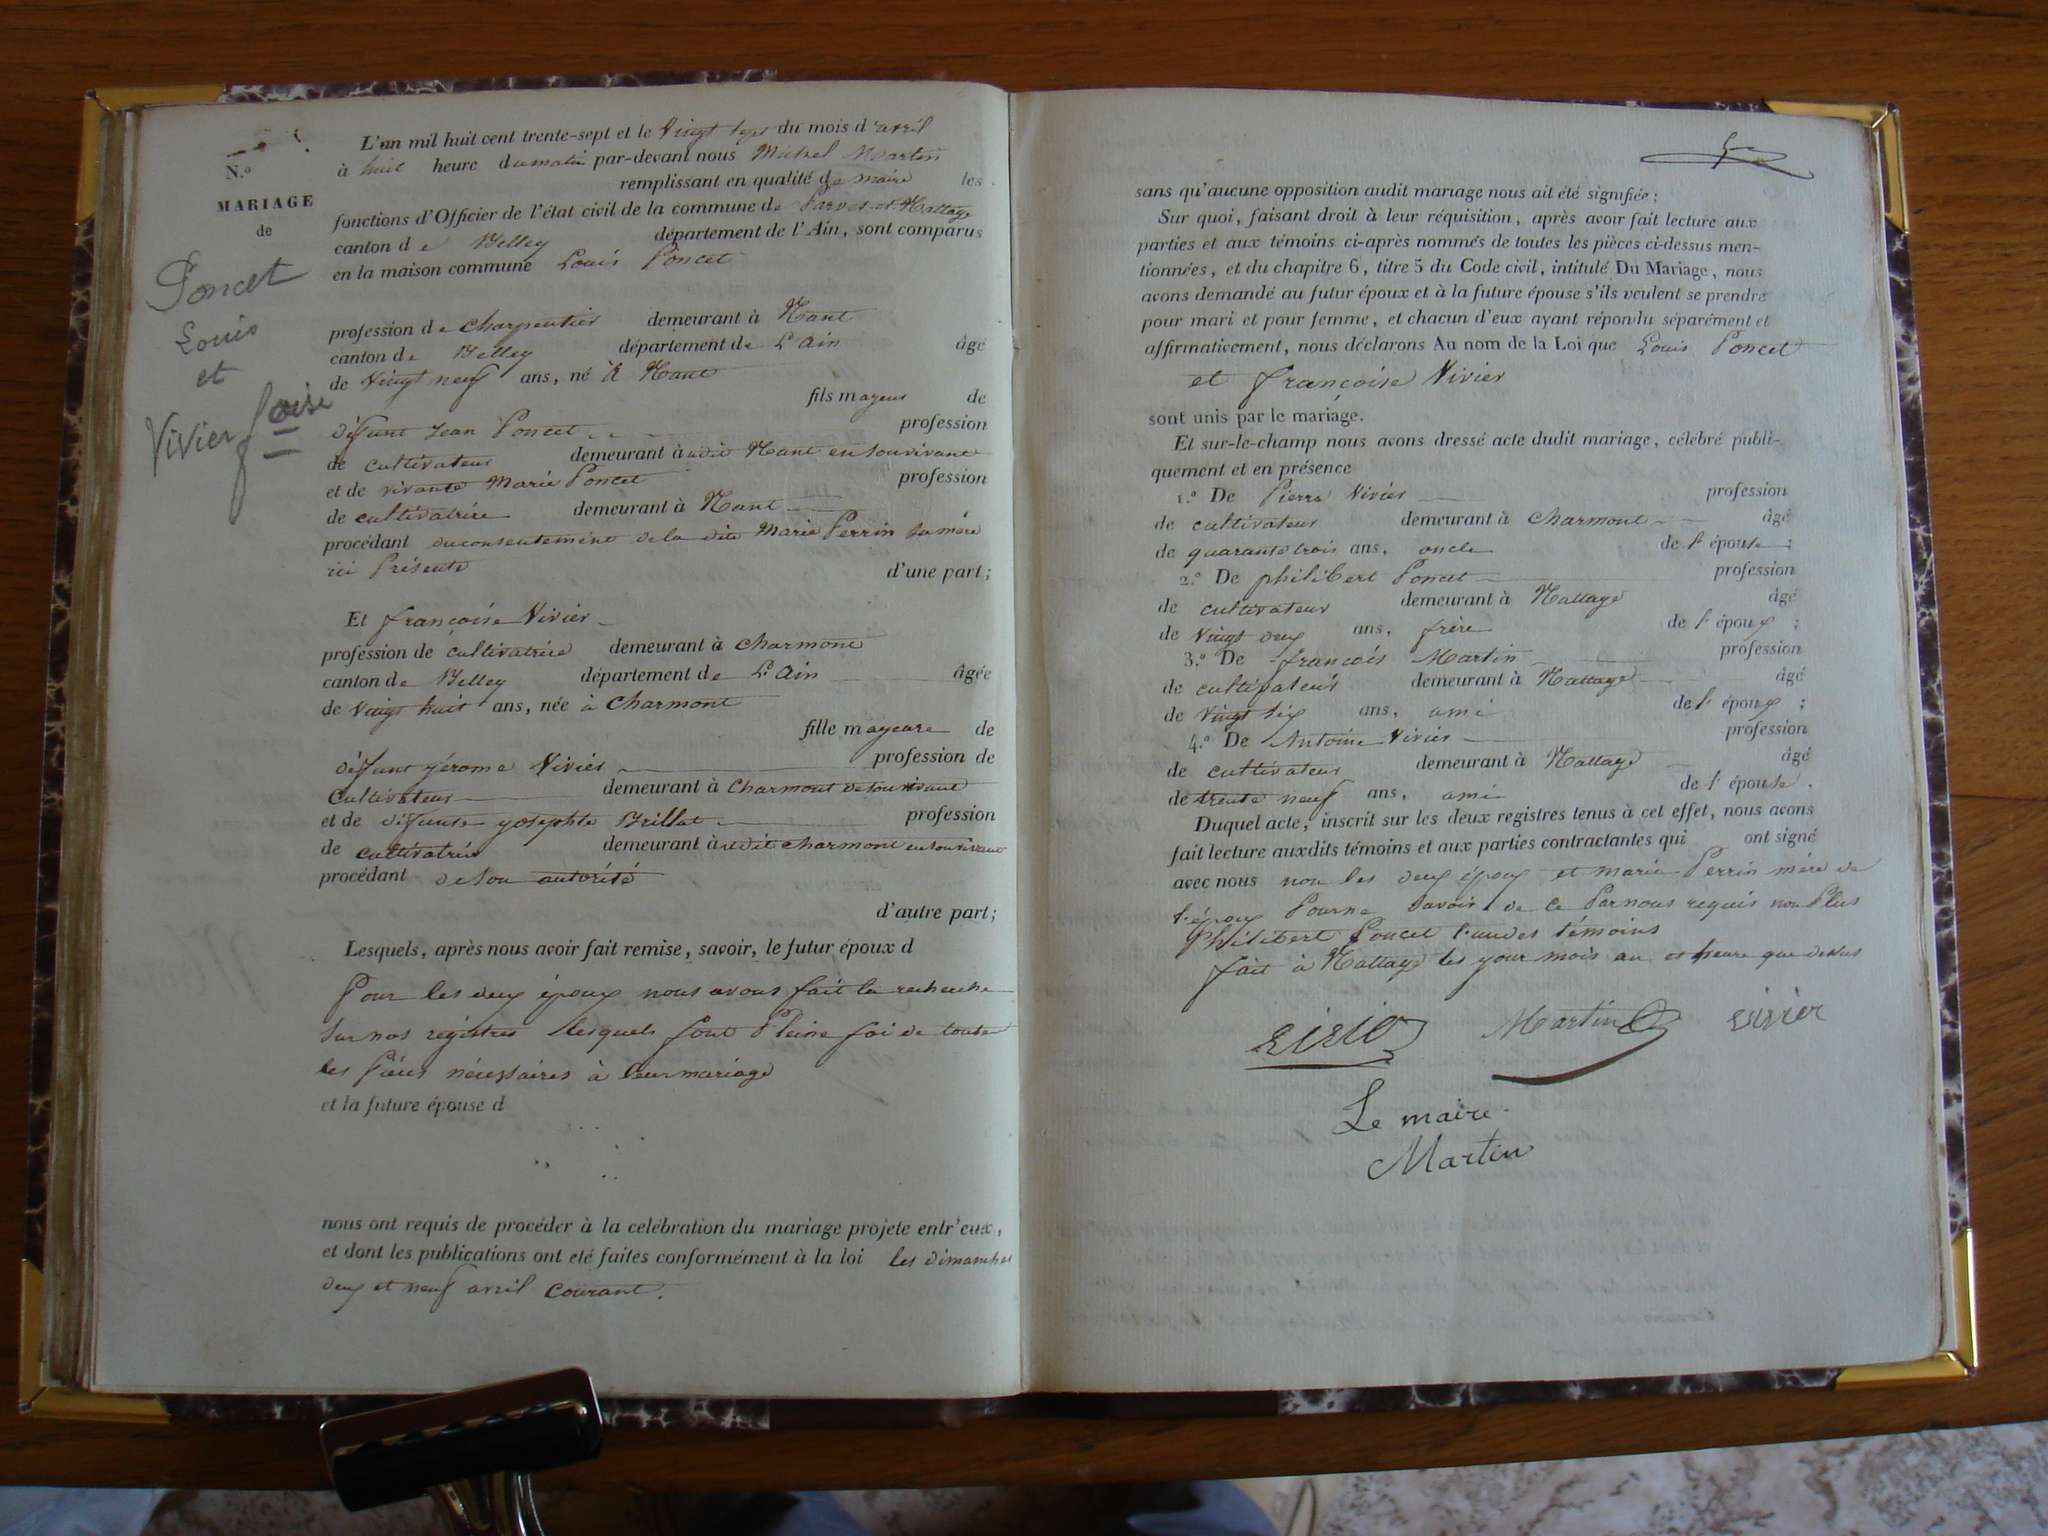 N.o
MARIAGE
de
Poncet
Louis
et
Vivier foise
L'an mil huit cent trente-sept et le vingt sept du mois d'avril
à huit heure du matin par-devant nous Michel Martin
remplissant en qualité de maire les
fonctions d'Officier de l'état civil de la commune de Parves et Nattage
canton de Belley département de l'Ain, sont comparus
en la maison commune Louis Poncet
profession de charpentier demeurant à Nant
canton de Belley département de L'Ain âgé
de vingt neuf ans, né à Nant
fils mayeur de
défunt Jean Poncet profession
de cultivateur demeurant à udit Nant en son vivant
et de vivante Marie Poncet profession
de cultivatrice demeurant à Nant
procédant du consentement de la dite Marie Perrin sa mère
ici Présente d'une part;
Et françoise Vivier
profession de cultivatrice demeurant à charmont
canton de Belley département de L'Ain âgée
de vingt huit ans, née à Charmont
fille mayeure de
défunt jérome Vivier profession de
Cultivateur demeurant à Charmont de son vivant
et de défunte josephte Brillat profession
de cultivatrice demeurant à udit charmont en son vivant
procédant de son autorité
d'autre part;
Lesquels, après nous avoir fait remise, savoir, le futur époux d
Pour les deux époux nous avons fait la recherche
sur nos registres lesquels font Pleine foi de toute
les Pièces nécessaires à leur mariage
et la future épouse d
nous ont requis de procéder à la celébration du mariage projete entr'eux,
et dont les publications ont eté faites conformément à la loi les dimanches
deux et neuf avril courant.
sans qu'aucune opposition audit mariage nous ait été signifiée;
Sur quoi, faisant droit à leur réquisition, après avoir fait lecture aux
parties et aux témoins ci-après nommés de toutes les pièces ci-dessus men-
tionnées, et du chapitre 6, titre 5 du Code civil, intitulé Du Mariage, nous
avons demandé au futur époux et à la future épouse s'ils veulent se prendre
pour mari et pour femme, et chacun d'eux ayant répondu séparément et
affirmativement, nous déclarons Au nom de la Loi que Louis Poncet
et françoise Vivier
sont unis par le mariage.
Et sur-le-champ nous avons dressé acte dudit mariage, célébré publi-
quement et en présence
1.o De Pierre Vivier profession
de cultivateur demeurant à Charmont âgé
de quarante trois ans, oncle de l'épouse;
2.o De philibert Poncet profession
de cultivateur demeurant à Nattage âgé
de vingt deux ans, frère de l'époux;
3.o De françois Martin profession
de cultivateur demeurant à Nattage âgé
de vingt six ans, ami de l'époux;
4.o De Antoine Vivier profession
de cultivateur demeurant à Nattage âgé
de trente neuf ans, ami de l'épouse.
Duquel acte, inscrit sur les deux registres tenus à cet effet, nous avons
fait lecture auxdits témoins et aux parties contractantes qui ont signé
avec nous non les deux époux et marie Perrin mère de
l'époux Pour ne savoir de ce Par nous requis non Plus
Philibert Poncet l'un des témoins
fait à Nattage les jour mois an et heure que dessus
Martin vivier
Le maire
Martin